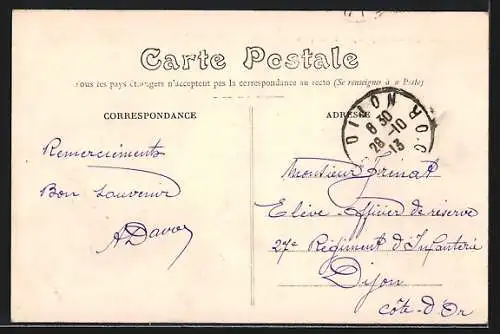 Carte Postale
Tous les pays étrangers n'acceptent pas la correspondance au recto (Se renseigner à la Poste)
CORRESPONDANCE
ADRESSE
DIJON
8 30
28-10
13
COTE D'OR
Remerciements
Bon souvenir
Monsieur
Elève-officier de réserve
27e Régiment d'Infanterie
Dijon
Côte-d'Or